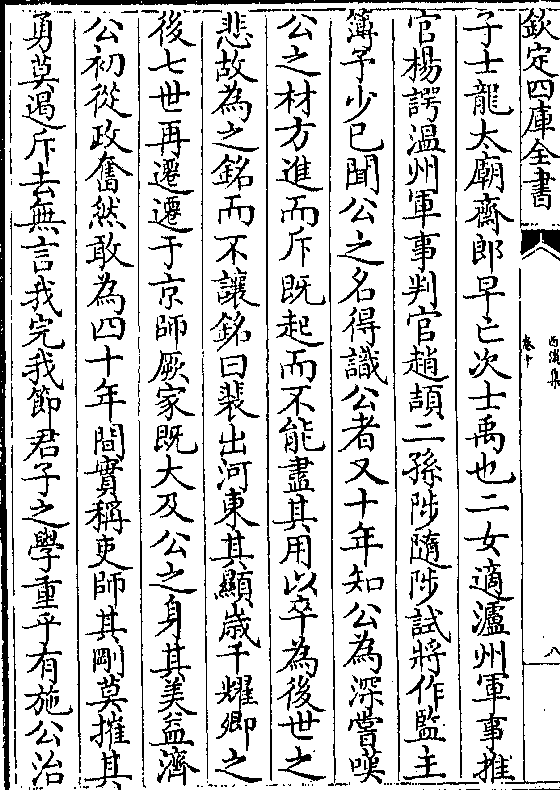 欽定四庫全書
西溪集
卷十
八
子士龍太廟齋郎早亡次士禹也二女適瀘州軍事推
官楊諤溫州軍事判官趙頡二孫陟隨陟試將作監主
簿予少已聞公之名得識公者又十年知公為深嘗嘆
公之材方進而斥既起而不能盡其用以卒為後世之
悲故為之銘而不讓銘曰裴出河東其顯歲千耀卿之
後七世再遷遷于京師厥家既大及公之身其美益濟
公初從政奮然敢為四十年間實稱吏師其剛莫摧其
勇莫遏斥去無言我完我節君子之學重乎有施公治